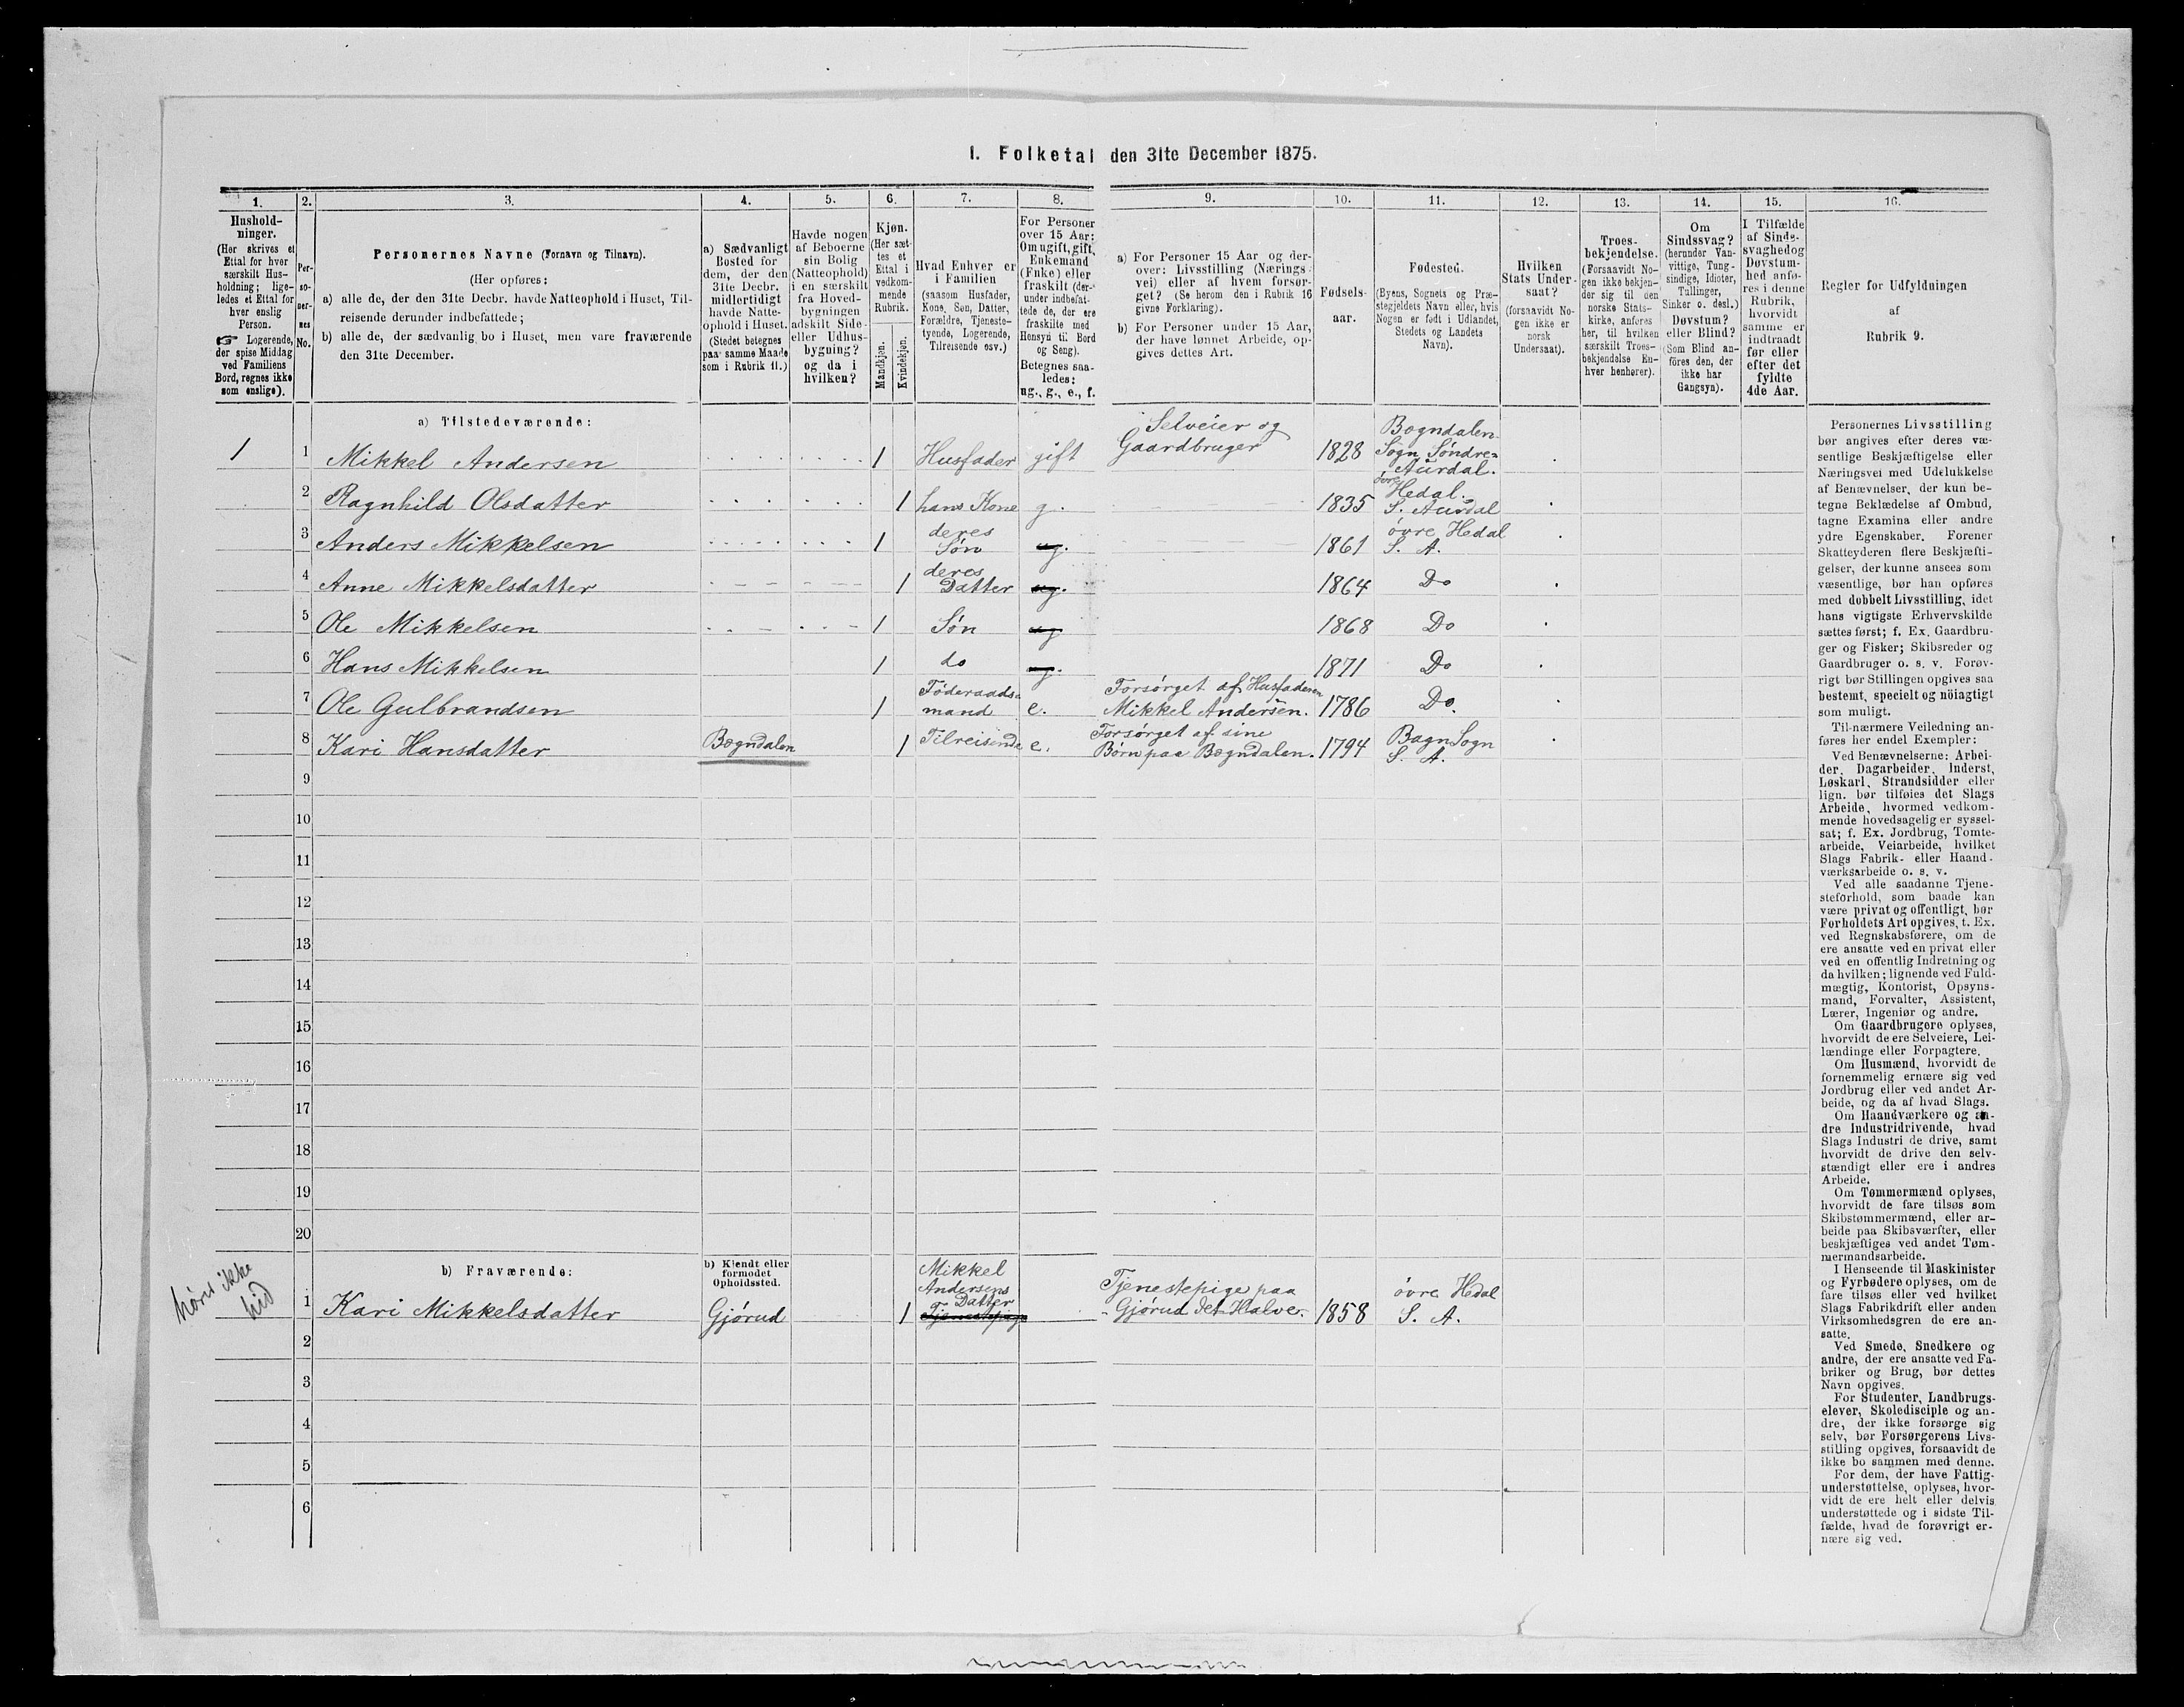 I. Folketal den 31te December 1875.
1.
Hushold-
ninger.
(Her skrives et
Ettal for hver
særskilt Hus-
holdning; lige-
ledes et Ettal for
hver enslig
Person.
☞ Logerende,
der spise Middag
ved Familiens
Bord, regnes ikke
som enslige).
2.
Per-
so-
ner-
nes
No.
3.
Personernes Navne (Fornavn og Tilnavn).
(Her opføres:
a) alle de, der den 31te Decbr. havde Natteophold i Huset, Til-
reisende derunder indbefattede;
b) alle de, der sædvanlig bo i Huset, men vare fraværende
den 31te December.
4.
a) Sædvanligt
Bosted for
dem, der den
31te Decbr.
midlertidigt
havde Natte-
ophold i Huset.
(Stedet betegnes
paa samme Maade
som i Rubrik 11.)
5.
Havde nogen
af Beboerne
sin Bolig
(Natteophold)
i en særskilt
fra Hoved-
bygningen
adskilt Side-
eller Udhus-
bygning?
og da i
hvilken?
6.
Kjøn.
(Her sæt-
tes et
Ettal i
vedkom-
mende
Rubrik.
Mandkjøn.
Kvindekjøn.
7.
Hvad Enhver er
i Familien
(saasom Husfader,
Kone, Søn, Datter,
Forældre, Tjeneste-
tyende, Logerende,
Tilreisende osv.)
8.
For Personer
over 15 Aar:
Om ugift, gift,
Enkemand
(Enke) eller
fraskilt (der-
under indbefat-
tede de, der ere
fraskilte med
Hensyn til Bord
og Seng).
Betegnes saa-
ledes:
ug., g., e., f.
9.
a) For Personer 15 Aar og der-
over: Livsstilling (Nærings-
vei) eller af hvem forsør-
get? (Se herom den i Rubrik 16
givne Forklaring).
b) For Personer under 15 Aar,
der have lønnet Arbeide, op-
gives dettes Art.
10.
Fødsels-
aar.
11.
Fødested.
(Byens, Sognets og Præ-
stegjeldets Navn eller, hvis
Nogen er født i Udlandet,
Stedets og Landets
Navn).
12.
Hvilken
Stats Under-
saat?
(forsaavidt No-
gen ikke er
norsk
Undersaat).
13.
Troes-
bekjendelse.
(Forsaavidt No-
gen ikke bekjen-
der sig til den
norske Stats-
kirke, anføres
her, til hvilken
særskilt Troes-
bekjendelse En-
hver henhører).
14.
Om
Sindssvag?
(herunder Van-
vittige, Tung-
sindige, Idioter,
Tullinger,
Sinker o. desl.)
Døvstum?
eller Blind?
(Som Blind an-
føres den, der
ikke har
Gangsyn).
15.
I Tilfælde
af Sinds-
svaghed og
Døvstum-
hed anfø-
res i denne
Rubrik,
hvorvidt
samme er
indtraadt
før eller
efter det
fyldte
4de Aar.
16.
Regler for Udfyldningen
af
Rubrik 9.
a) Tilstedeværende:
1 1 Mikkel Andersen 1 Husfader gift Selveier og Gaardbruger 1828 Bogndalen Sogn Søndre Aurdal.
2 Ragnhild Olsdatter 1 hans Kone g. 1835 övre Hedal. S. Aurdal
3 Anders Mikkelsen 1 deres Søn ug. 1861 övre Hedal S. A.
4 Anne Mikkelsdatter 1 deres Datter ug. 1864 Do
5 Ole Mikkelsen 1 Søn ug 1868 Do
6 Hans Mikkelsen 1 do ug. 1871 Do
7 Ole Gulbrandsen 1 Föderaads mand e. Forsörget af Husfaderen Mikkel Andersen. 1786 Do.
8 Kari Hansdatter Bogndalen 1 Tilreisende e. Forsörget af sine Börn paa Bogndalen. 1794 Bagn Sogn S. A.
9
10
11
12
13
14
15
16
17
18
19
20
b) Fraværende:
b) Kjendt eller
formodet
Opholdssted.
hörer ikke
hid
1 Kari Mikkelsdatter Gjörud 1 Mikkel Andersens Datter Tjenestepige Tjenestepige paa Gjörud det Halve. 1858 övre Hedal S. A.
2
3
4
5
6
Personernes Livsstilling
bør angives efter deres væ-
sentlige Beskjæftigelse eller
Næringsvei med Udelukkelse
af Benævnelser, der kun be-
tegne Beklædelse af Ombud,
tagne Examina eller andre
ydre Egenskaber. Forener
Skatteyderen flere Beskjæfti-
gelser, der kunne ansees som
væsentlige, bør han opføres
med dobbelt Livsstilling, idet
hans vigtigste Erhvervskilde
sættes først; f. Ex. Gaardbru-
ger og Fisker; Skibsreder og
Gaardbruger o. s. v. Forøv-
rigt bør Stillingen opgives saa
bestemt, specielt og nöiagtigt
som muligt.
Til nærmere Veiledning an-
føres her endel Exempler:
Ved Benævnelserne: Arbei-
der, Dagarbeider, Inderst,
Løskarl, Strandsidder eller
lign. bør tilføies det Slags
Arbeide, hvormed vedkom-
mende hovedsagelig er syssel-
sat; f. Ex. Jordbrug, Tomte-
arbeide, Veiarbeide, hvilket
Slags Fabrik- eller Haand-
værksarbeide o. s. v.
Ved alle saadanne Tjene-
steforhold, som baade kan
være privat og offentligt, bør
Forholdets Art opgives, t. Ex.
ved Regnskabsførere, om de
ere ansatte ved en privat eller
ved en offentlig Indretning og
da hvilken; lignende ved Fuld-
mægtig, Kontorist, Opsyns-
mand, Forvalter, Assistent,
Lærer, Ingeniør og andre.
Om Gaardbrugere oplyses,
hvorvidt de ere Selveiere, Lei-
lændinge eller Forpagtere.
Om Husmænd, hvorvidt de
fornemmelig ernære sig ved
Jordbrug eller ved andet Ar-
beide, og da af hvad Slags.
Om Haandværkere og an-
dre Industridrivende, hvad
Slags Industri de drive, samt
hvorvidt de drive den selv-
stændigt eller ere i andres
Arbeide.
Om Tømmermænd oplyses,
hvorvidt de fare tilsøs som
Skibstømmermænd, eller ar-
beide paa Skibsværfter, eller
beskjæftiges ved andet Tøm-
mermandsarbeide.
I Henseende til Maskinister
og Fyrbødere oplyses, om de
fare tilsøs eller ved hvilket
Slags Fabrikdrift eller anden
Virksomhedsgren de ere an-
satte.
Ved Smede, Snedkere og
andre, der ere ansatte ved Fa-
briker og Brug, bør dettes
Navn opgives.
For Studenter, Landbrugs-
elever, Skoledisciple og an-
dre, der ikke forsørge sig
selv, bør Forsørgerens Livs-
stilling opgives, forsaavidt de
ikke bo sammen med denne.
For dem, der have Fattig-
understøttelse, oplyses, hvor-
vidt de ere helt eller delvis
understøttede og i sidste Til-
fælde, hvad de forøvrigt er-
nære sig ved.